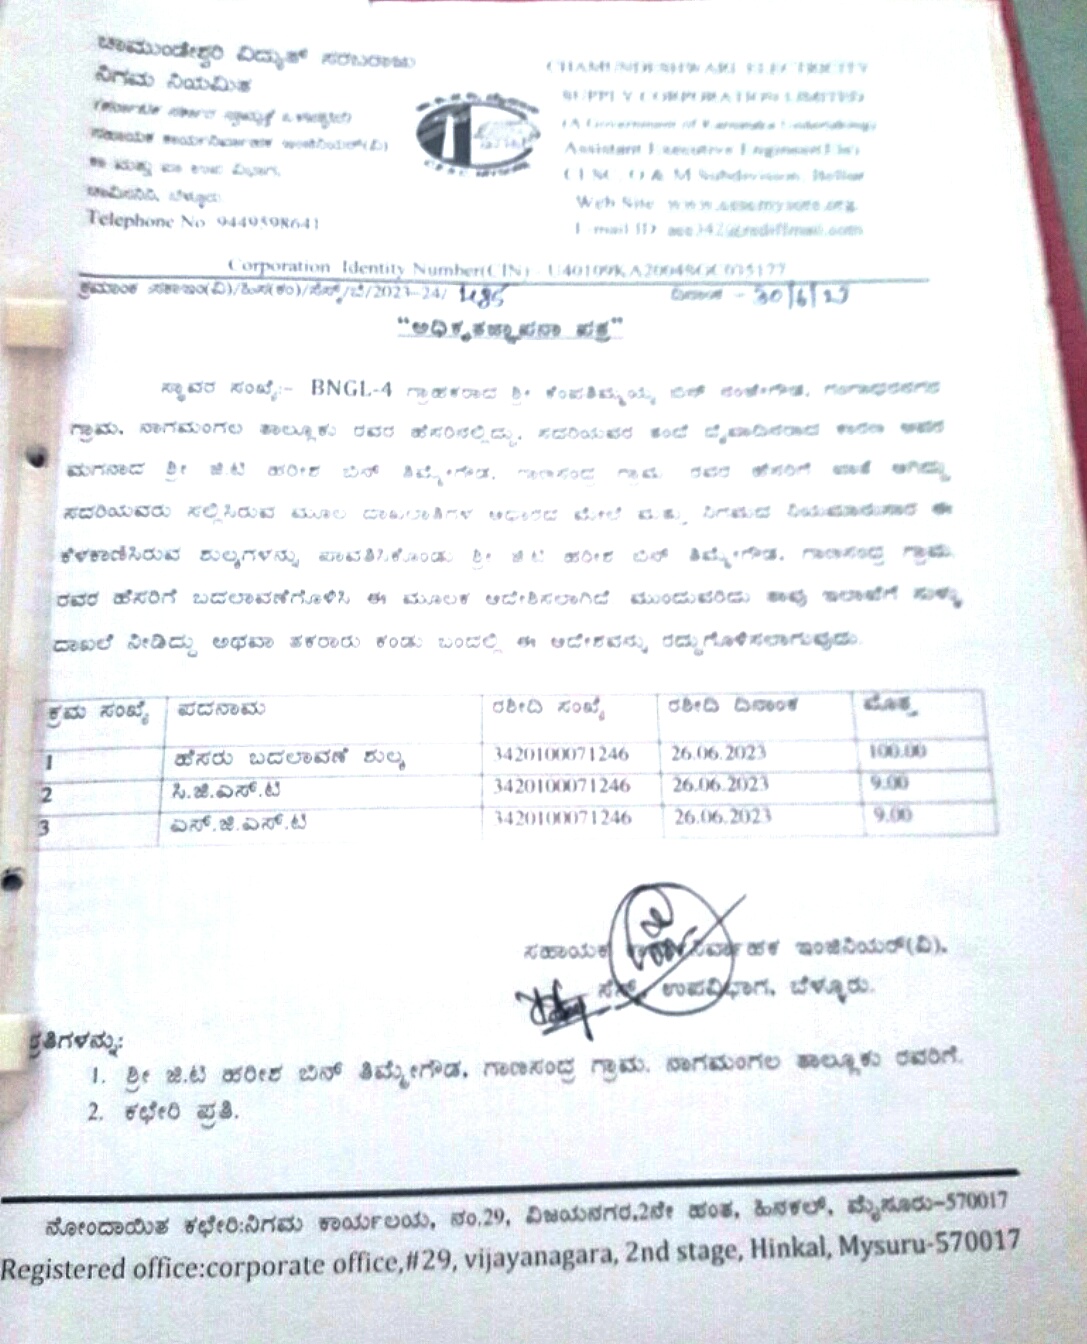 ಚಾಮುಂಡೇಶ್ವರಿ ವಿದ್ಯುತ್ ಸರಬರಾಜು
ನಿಗಮ ನಿಯಮಿತ
ಸಹಾಯಕ ಕಾರ್ಯನಿರ್ವಾಹಕ ಇಂಜಿನಿಯರ್(ವಿ)
ಚಾವಿಸನಿನಿ, ಬೆಳ್ಳೂರು
Telephone No 9449598641
CHAMUNDESHWARI ELECTRICITY
SUPPLY CORPORATION LIMITED
(A Government of Karnataka Undertaking)
Assistant Executive Engineer(Ele)
O & M Subdivision, Bellur
Web Site www.cescmysore.org
E mail ID aee342@rediffmail.com
Corporation Identity Number(CIN) - U40109KA2004SGC035177
ಕ್ರಮಾಂಕ ಸಕಾಇಂ(ವಿ)/ಹಿಸ(ಕಂ)/ಸೆಸ್ಕ್/ಬೆ/2023-24/ ದಿನಾಂಕ - 30/6/23
"ಅಧಿಕೃತಜ್ಞಾಪನಾ ಪತ್ರ"
ಸ್ಥಾವರ ಸಂಖ್ಯೆ:- BNGL-4 ಗ್ರಾಹಕರಾದ ಶ್ರೀ ಕೆಂಪತಿಮ್ಮಯ್ಯ ಬಿನ್ ನಂಜೇಗೌಡ, ಗಂಗಾಧರನಗರ
ಗ್ರಾಮ, ನಾಗಮಂಗಲ ತಾಲ್ಲೂಕು ರವರ ಹೆಸರಿನಲ್ಲಿದ್ದು, ಸದರಿಯವರ ತಂದೆ ದೈವಾದಿನರಾದ ಕಾರಣ ಅವರ
ಮಗನಾದ ಶ್ರೀ ಜಿ.ಟಿ ಹರೀಶ ಬಿನ್ ತಿಮ್ಮೇಗೌಡ, ಗಾಣಸಂದ್ರ ಗ್ರಾಮ ರವರ ಹೆಸರಿಗೆ ಖಾತೆ ಆಗಿದ್ದು
ಸದರಿಯವರು ಸಲ್ಲಿಸಿರುವ ಮೂಲ ದಾಖಲಾತಿಗಳ ಆಧಾರದ ಮೇಲೆ ಮತ್ತು ನಿಗಮದ ನಿಯಮಾನುಸಾರ ಈ
ಕೆಳಕಾಣಿಸಿರುವ ಶುಲ್ಕಗಳನ್ನು ಪಾವತಿಸಿಕೊಂಡು ಶ್ರೀ ಜಿ.ಟಿ ಹರೀಶ ಬಿನ್ ತಿಮ್ಮೇಗೌಡ, ಗಾಣಸಂದ್ರ ಗ್ರಾಮ
ರವರ ಹೆಸರಿಗೆ ಬದಲಾವಣೆಗೊಳಿಸಿ ಈ ಮೂಲಕ ಆದೇಶಿಸಲಾಗಿದೆ ಮುಂದುವರಿದು ತಾವು ಇಲಾಖೆಗೆ ಸುಳ್ಳು
ದಾಖಲೆ ನೀಡಿದ್ದು ಅಥವಾ ತಕರಾರು ಕಂಡು ಬಂದಲ್ಲಿ ಈ ಆದೇಶವನ್ನು ರದ್ದುಗೊಳಿಸಲಾಗುವುದು.
ಕ್ರಮ ಸಂಖ್ಯೆ ಪದನಾಮ ರಶೀದಿ ಸಂಖ್ಯೆ ರಶೀದಿ ದಿನಾಂಕ ಮೊತ್ತ
1 ಹೆಸರು ಬದಲಾವಣೆ ಶುಲ್ಕ 3420100071246 26.06.2023 100.00
2 ಸಿ.ಜಿ.ಎಸ್.ಟಿ 3420100071246 26.06.2023 9.00
3 ಎಸ್.ಜಿ.ಎಸ್.ಟಿ 3420100071246 26.06.2023 9.00
ಸಹಾಯಕ ಕಾರ್ಯನಿರ್ವಾಹಕ ಇಂಜಿನಿಯರ್(ವಿ),
ಸೆಸ್ಕ್, ಉಪವಿಭಾಗ, ಬೆಳ್ಳೂರು.
ಪ್ರತಿಗಳನ್ನು:
1. ಶ್ರೀ ಜಿ.ಟಿ ಹರೀಶ ಬಿನ್ ತಿಮ್ಮೇಗೌಡ, ಗಾಣಸಂದ್ರ ಗ್ರಾಮ, ನಾಗಮಂಗಲ ತಾಲ್ಲೂಕು ರವರಿಗೆ.
2. ಕಛೇರಿ ಪ್ರತಿ.
ನೋಂದಾಯಿತ ಕಛೇರಿ:ನಿಗಮ ಕಾರ್ಯಲಯ, ನಂ.29, ವಿಜಯನಗರ,2ನೇ ಹಂತ, ಹಿನಕಲ್, ಮೈಸೂರು-570017
Registered office:corporate office,#29, vijayanagara, 2nd stage, Hinkal, Mysuru-570017